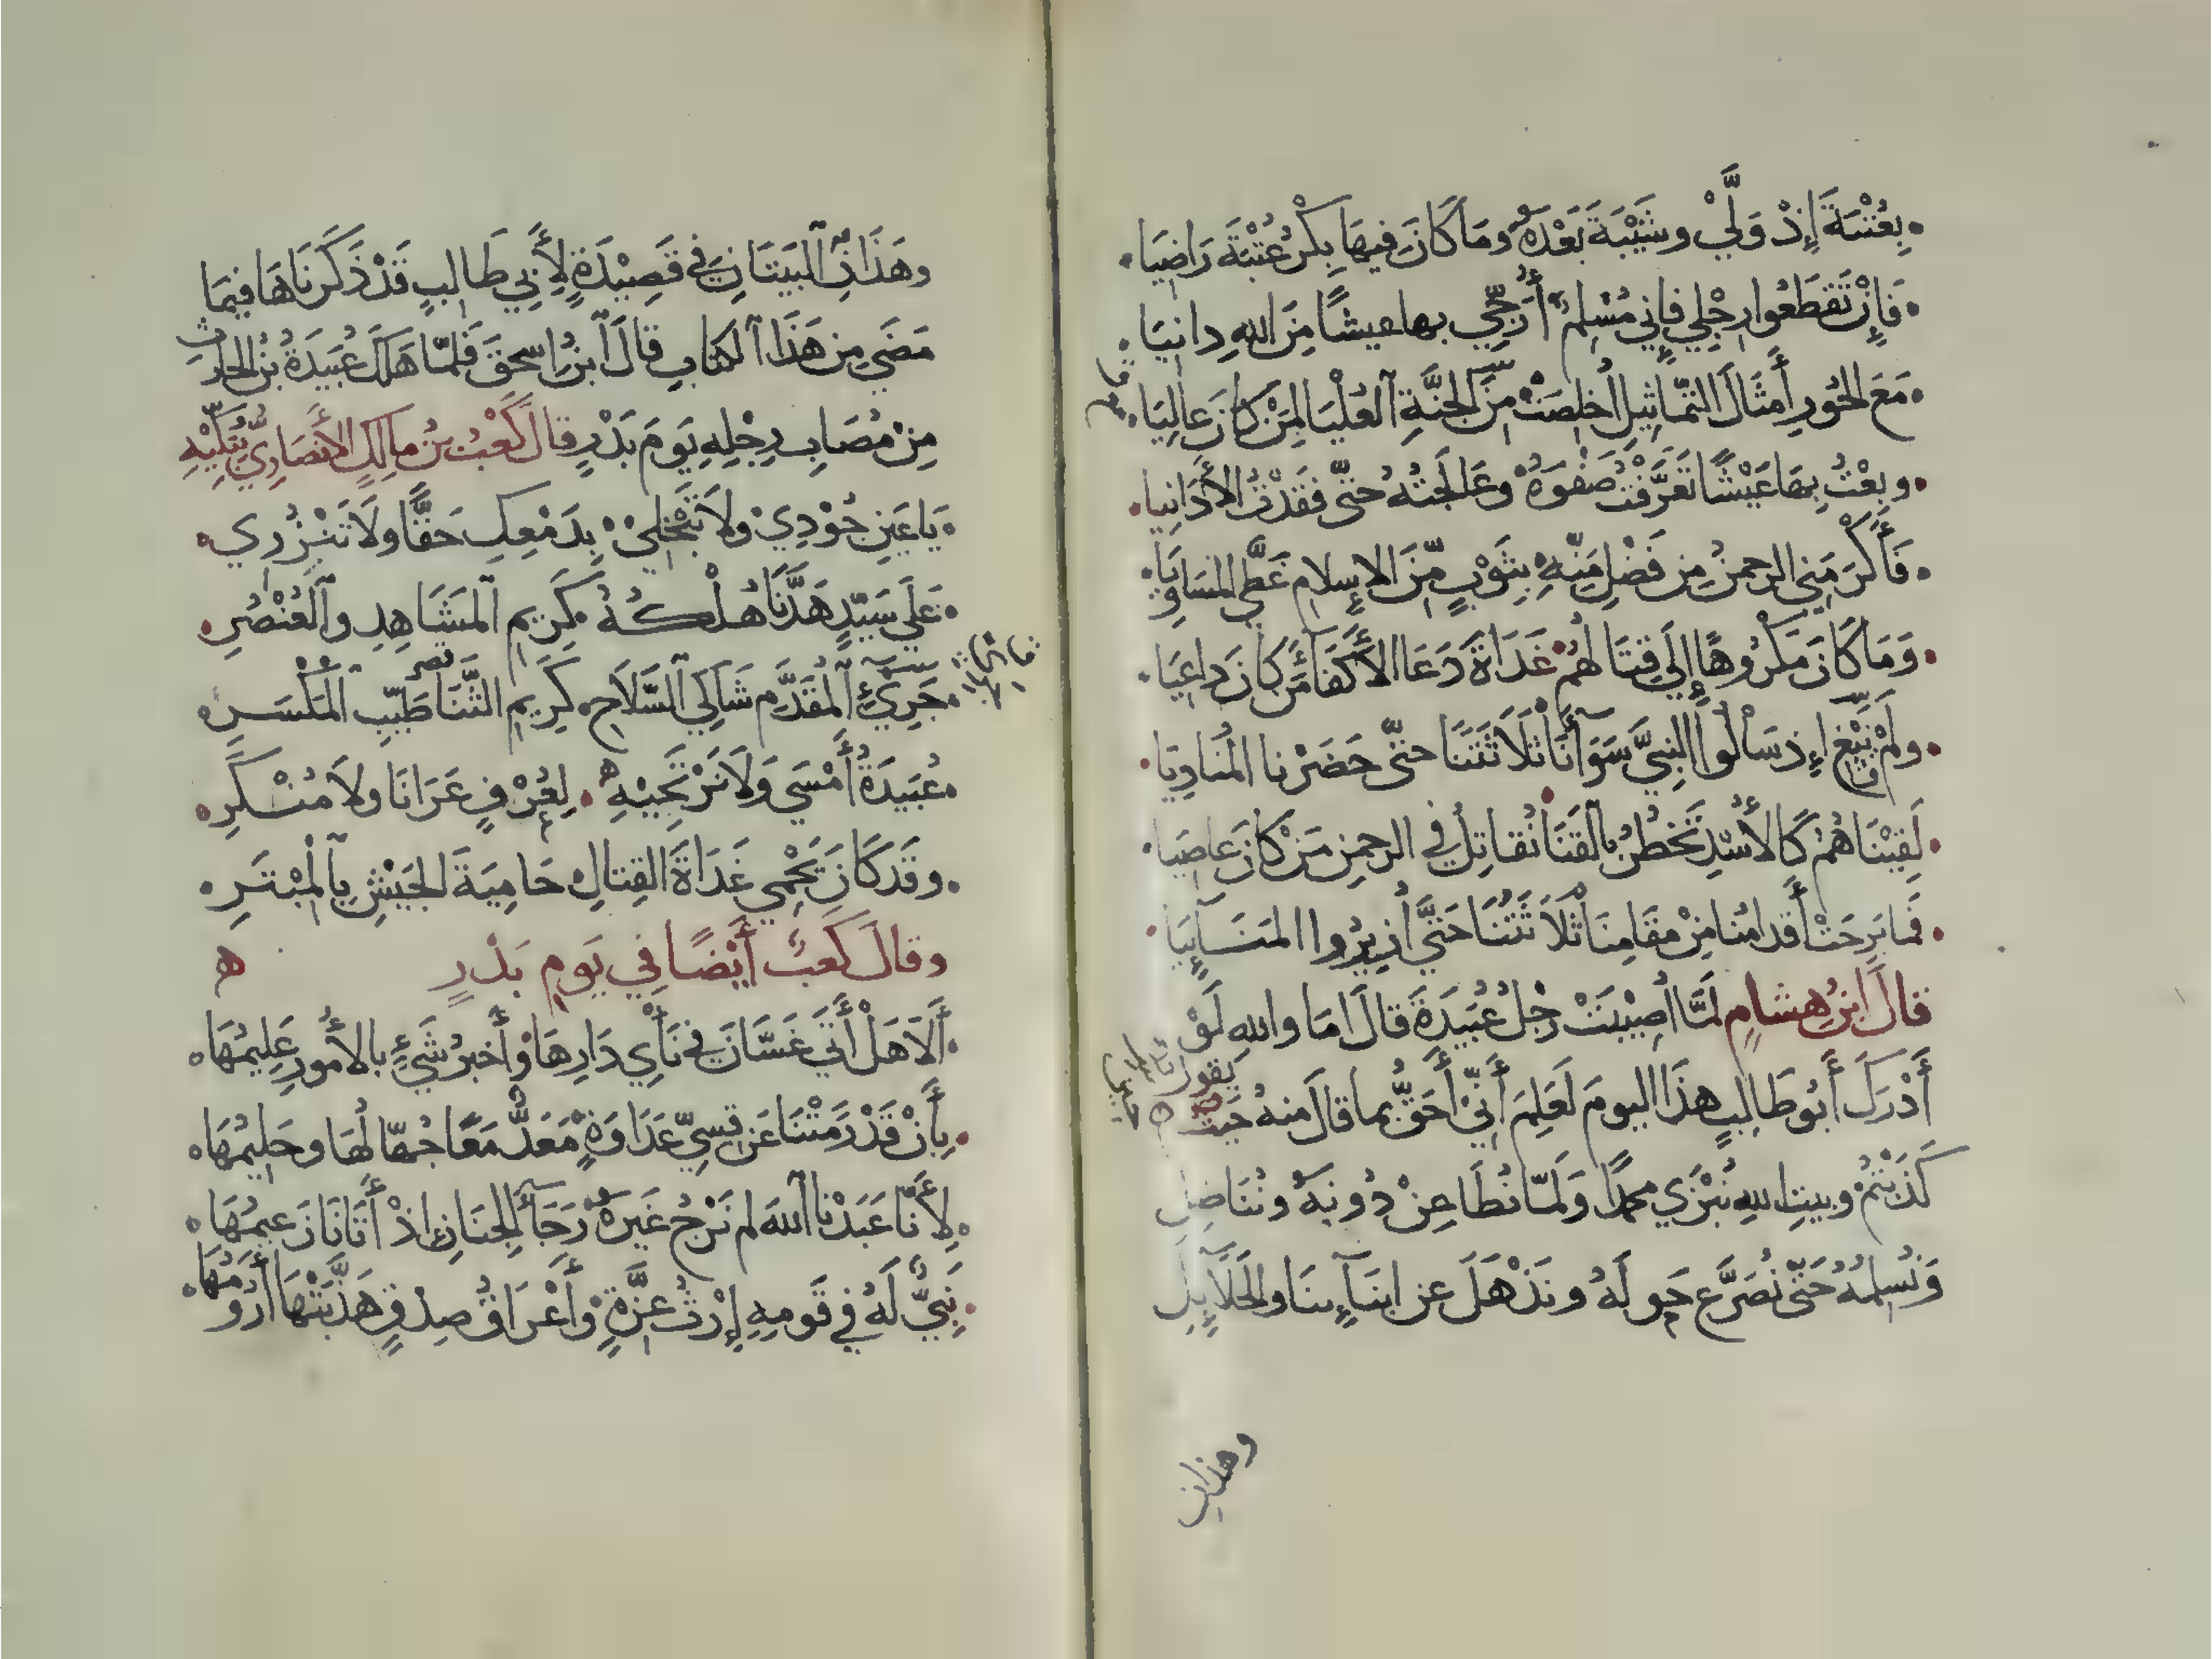 بِعُتْبَةَ إِذْ وَلَّيْ وشَيْبَةَ بَعْدَهُ وَمَا كَانَ فِيهَا بِكْرُ عُتْبَةَ رَاضِيَا
فَإِنْ تَقْطَعُوا رِجْلِي فَإِنِّي مُسْلِمٌ أُرَجِّي بها عيشًا مِنَ اللهِ دانِيَا
مَعَ الحُورِ أَمْثَالَ التَّمَاثِيلِ أُخْلِصَتْ مِنَ الجَنَّةِ العُلْيَا لِمَنْ كَانَ عَالِيَا
وبِعْتُ بِهَا عَيْشًا تَعَرَّفْتُ صَفْوَهُ وعَالَجْتُهُ حتّى فَقَدْتُ الأَدَانِيا
فَأَكْرَمَنِي الرحمنُ مِن فَضْلِ مَنِّهِ بِثَوْبٍ مِّنَ الإِسلامِ غَطَّى المَسَاوِيَا
وَمَا كَانَ مَكْرُوهًا إِلَيَّ قِتَالُهُمْ غَدَاةَ دَعَا الأَكْفَا مَن كَانَ داعِيَا
ولَمْ يَبْغِ إِذ سَأَلُوا النبيَّ سَوَآئَنَا ثَلَاثَتَنَا حتّى حَضَرْنا المُنادِيَا
لَقِيْنَاهُمْ كَالأُسْدِ تَخْطُرُ بِالقَنَا نُقاتِلُ في الرحمنِ مَنْ كَانَ عاصِيَا
فَمَا بَرِحَتْ أَقدامُنا مِنْ مَقَامِنَا ثَلَاثَتُنَا حَتَّى أُزِيْرُوا المَنَآيَيَا
قالَ ابنُ هشامٍ لَمَّا أُصِيْبَتْ رِجْلُ عُبَيدَةَ قالَ امَا واللهِ لَوْ
أَدْرَكَ أَبُو طَالِبٍ هذَا اليومَ لَعَلِمَ أَنِّيْ أَحَقُّ بما قالَ منهُ حَيْثُ يَقولُ
كَذَبْتُمْ وبيتِ اللهِ نُبْزَي محمدًا وَلَمّا نُطَاعِنْ دُونَهُ ونُنَاضِلِ
وَنُسْلِمُهُ حَتّى نُصَرَّعَ حَولَهُ ونَذْهَلَ عن ابنَآئِنَا والحَلَآئِلِ
وهذان
وهَذَانِ البَيتَانِ في قَصِيْدَةٍ لِأَبِي طَالبٍ قَدْ ذَكَرْنَاهَا فيمَا
مَضَي مِن هَذَا الكتابِ قالَ ابنُ إِسحقَ فَلمَّا هَلَكَ عُبَيدَةُ بْنُ الحارث
مِنْ مُصَابِ رِجْلِهِ يَومَ بَدْرٍ قالَ كَعْبُ بنُ مالِكٍ الأنصَارِيُّ يُبَكِّيْهِ
يَا عَينِ جُوْدِيْ ولَا تَبْخَلِيْ بِدَمْعِكِ حَقًّا ولَا تَنْزُرِي
عَلَي سَيِّدٍ هَدَّنَا هُلْكُهُ كَرِيمِ المَشَاهِدِ والعُنْصُرِ
جَرِيْءِ المُقَدَّمِ شَاكِي السِّلَاحِ كَرِيمِ الثَّنَا طَيِّبِ المَكْسَرِ
عُبَيدَةُ أَمْسَى وَلَا نَرْتَجِيْهِ لِعُرْفٍ عَرَانَا ولَا مُنْكَرِ
وقَد كَانَ يَحْمِي غَدَاةَ القِتالِ حَامِيَةَ الجَيْشِ بِالمِبْتَرِ
وقالَ كَعبٌ أَيْضًا فِي يَومِ بَدْرٍ ه
أَلَا هَلْ أَتَي غَسَّانَ في نَأْيِ دَارِهَا وأَخبرُ شَيْءٍ بالأُمُورِ عَلِيمُهَا
بِأَنْ قَدْ رَمَتْنَا عَن قِسِيٍّ عَدَاوَةٍ مَعَدٌّ مَعًا جُهّالُهَا وحَلِيمُهَا
لأَنَّا عَبَدْنا اللهَ لم نَرْجُ غَيرَهُ رَجَآءَ الجِنَانِ اذْ أَتَانَا زَعيمُهَا
نَبِيٌّ لَهُ في قَومِهِ إِرْثُ عِزَّةٍ وأَعْرَاقُ صِدْقٍ هَذَّبَتْهَا أُرُومُهَا